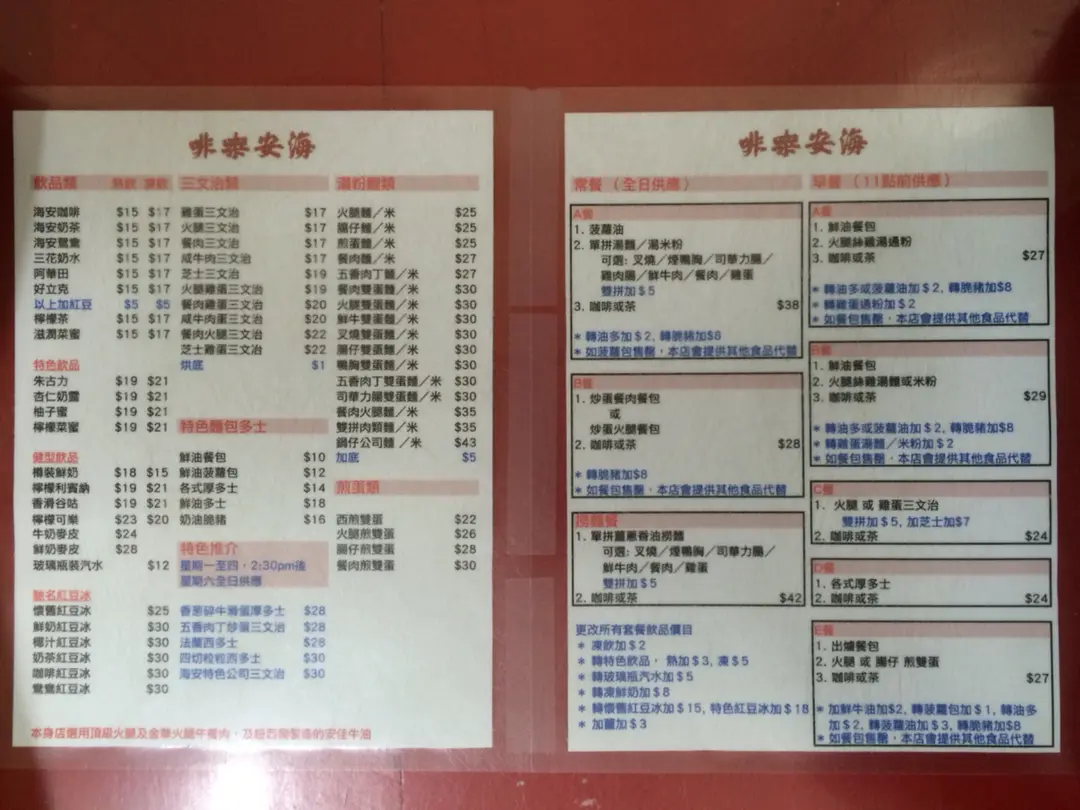 海安㗎啡
飲品類 熱飲 凍飲
海安咖啡 $15 $17
海安奶茶 $15 $17
海安鴛鴦 $15 $17
三花奶水 $15 $17
阿華田 $15 $17
好立克 $15 $17
以上加紅豆 $5 $5
檸檬茶 $15 $17
滋潤菜蜜 $15 $17
特色飲品
朱古力 $19 $21
杏仁奶露 $19 $21
柚子蜜 $19 $21
檸檬菜蜜 $19 $21
健型飲品
樽裝鮮奶 $18 $15
檸檬利賓納 $19 $21
香滑谷咕 $19 $21
檸檬可樂 $23 $20
牛奶麥皮 $24
鮮奶麥皮 $28
玻璃瓶裝汽水 $12
馳名紅豆冰
懷舊紅豆冰 $25
鮮奶紅豆冰 $30
椰汁紅豆冰 $30
奶茶紅豆冰 $30
咖啡紅豆冰 $30
鴛鴦紅豆冰 $30
三文治類
雞蛋三文治 $17
火腿三文治 $17
餐肉三文治 $17
咸牛肉三文治 $17
芝士三文治 $19
火腿雞蛋三文治 $19
餐肉雞蛋三文治 $20
咸牛肉蛋三文治 $20
餐肉火腿三文治 $22
芝士雞蛋三文治 $22
烘底 $1
特色麵包多士
鮮油餐包 $10
鮮油菠蘿包 $12
各式厚多士 $14
鮮油多士 $18
奶油脆豬 $16
特色推介
星期一至四，2:30pm後
星期六全日供應
香蔥碎牛滑蛋厚多士 $28
五香肉丁炒蛋三文治 $28
法蘭西多士 $28
四切粒粒西多士 $30
海安特色公司三文治 $30
湯粉麵類
火腿麵／米 $25
腸仔麵／米 $25
煎蛋麵／米 $25
餐肉麵／米 $27
五香肉丁麵／米 $27
餐肉雙蛋麵／米 $30
火腿雙蛋麵／米 $30
鮮牛雙蛋麵／米 $30
叉燒雙蛋麵／米 $30
腸仔雙蛋麵／米 $30
鴨胸雙蛋麵／米 $30
五香肉丁雙蛋麵／米 $30
司華力腸雙蛋麵／米 $30
餐肉火腿麵／米 $35
雙拼肉類麵／米 $35
鍋仔公司麵 ／米 $43
加底 $5
煎蛋類
西煎雙蛋 $22
火腿煎雙蛋 $26
腸仔煎雙蛋 $28
餐肉煎雙蛋 $30
本身店選用頂級火腿及金華火腿午餐肉，及紐西蘭製造的安佳牛油
海安㗎啡
常餐 （全日供應）
A餐
1. 菠蘿油
2. 單拼湯麵／湯米粉
可選: 叉燒／煙鴨胸／司華力腸／
雞肉腸／鮮牛肉／餐肉／雞蛋
雙拼加＄5
3. 咖啡或茶 $38
* 轉油多加＄2, 轉脆豬加$8
* 如菠蘿包售罄，本店會提供其他食品代替
B餐
1. 炒蛋餐肉餐包
或
炒蛋火腿餐包
2. 咖啡或茶 $28
* 轉脆豬加$8
* 如餐包售罄，本店會提供其他食品代替
撈麵餐
1. 單拼薑蔥香油撈麵
可選: 叉燒／煙鴨胸／司華力腸／
鮮牛肉／餐肉／雞蛋
雙拼加＄5
2. 咖啡或茶 $42
更改所有套餐飲品價目
* 凍飲加＄2
* 轉特色飲品， 熱加＄3, 凍＄5
* 轉玻璃瓶汽水加＄5
* 轉凍鮮奶加＄8
* 轉懷舊紅豆冰加＄15, 特色紅豆冰加＄18
* 加薑加＄3
早餐 （11點前供應）
A餐
1. 鮮油餐包
2. 火腿絲雞湯通粉
3. 咖啡或茶 $27
* 轉油多或菠蘿油加＄2, 轉脆豬加$8
* 轉雞蛋通粉加＄2
* 如餐包售罄，本店會提供其他食品代替
B餐
1. 鮮油餐包
2. 火腿絲雞湯麵或米粉
3. 咖啡或茶 $29
* 轉油多或菠蘿油加＄2, 轉脆豬加$8
* 轉雞蛋湯麵／米粉加＄2
* 如餐包售罄，本店會提供其他食品代替
C餐
1. 火腿 或 雞蛋三文治
雙拼加＄5, 加芝士加$7
2. 咖啡或茶 $24
D餐
1. 各式厚多士
2. 咖啡或茶 $24
E餐
1. 出爐餐包
2. 火腿 或 腸仔 煎雙蛋
3. 咖啡或茶 $27
* 加鮮牛油加$2, 轉菠蘿包加＄1, 轉油多
加＄2, 轉菠蘿油加＄3, 轉脆豬加$8
* 如餐包售罄，本店會提供其他食品代替